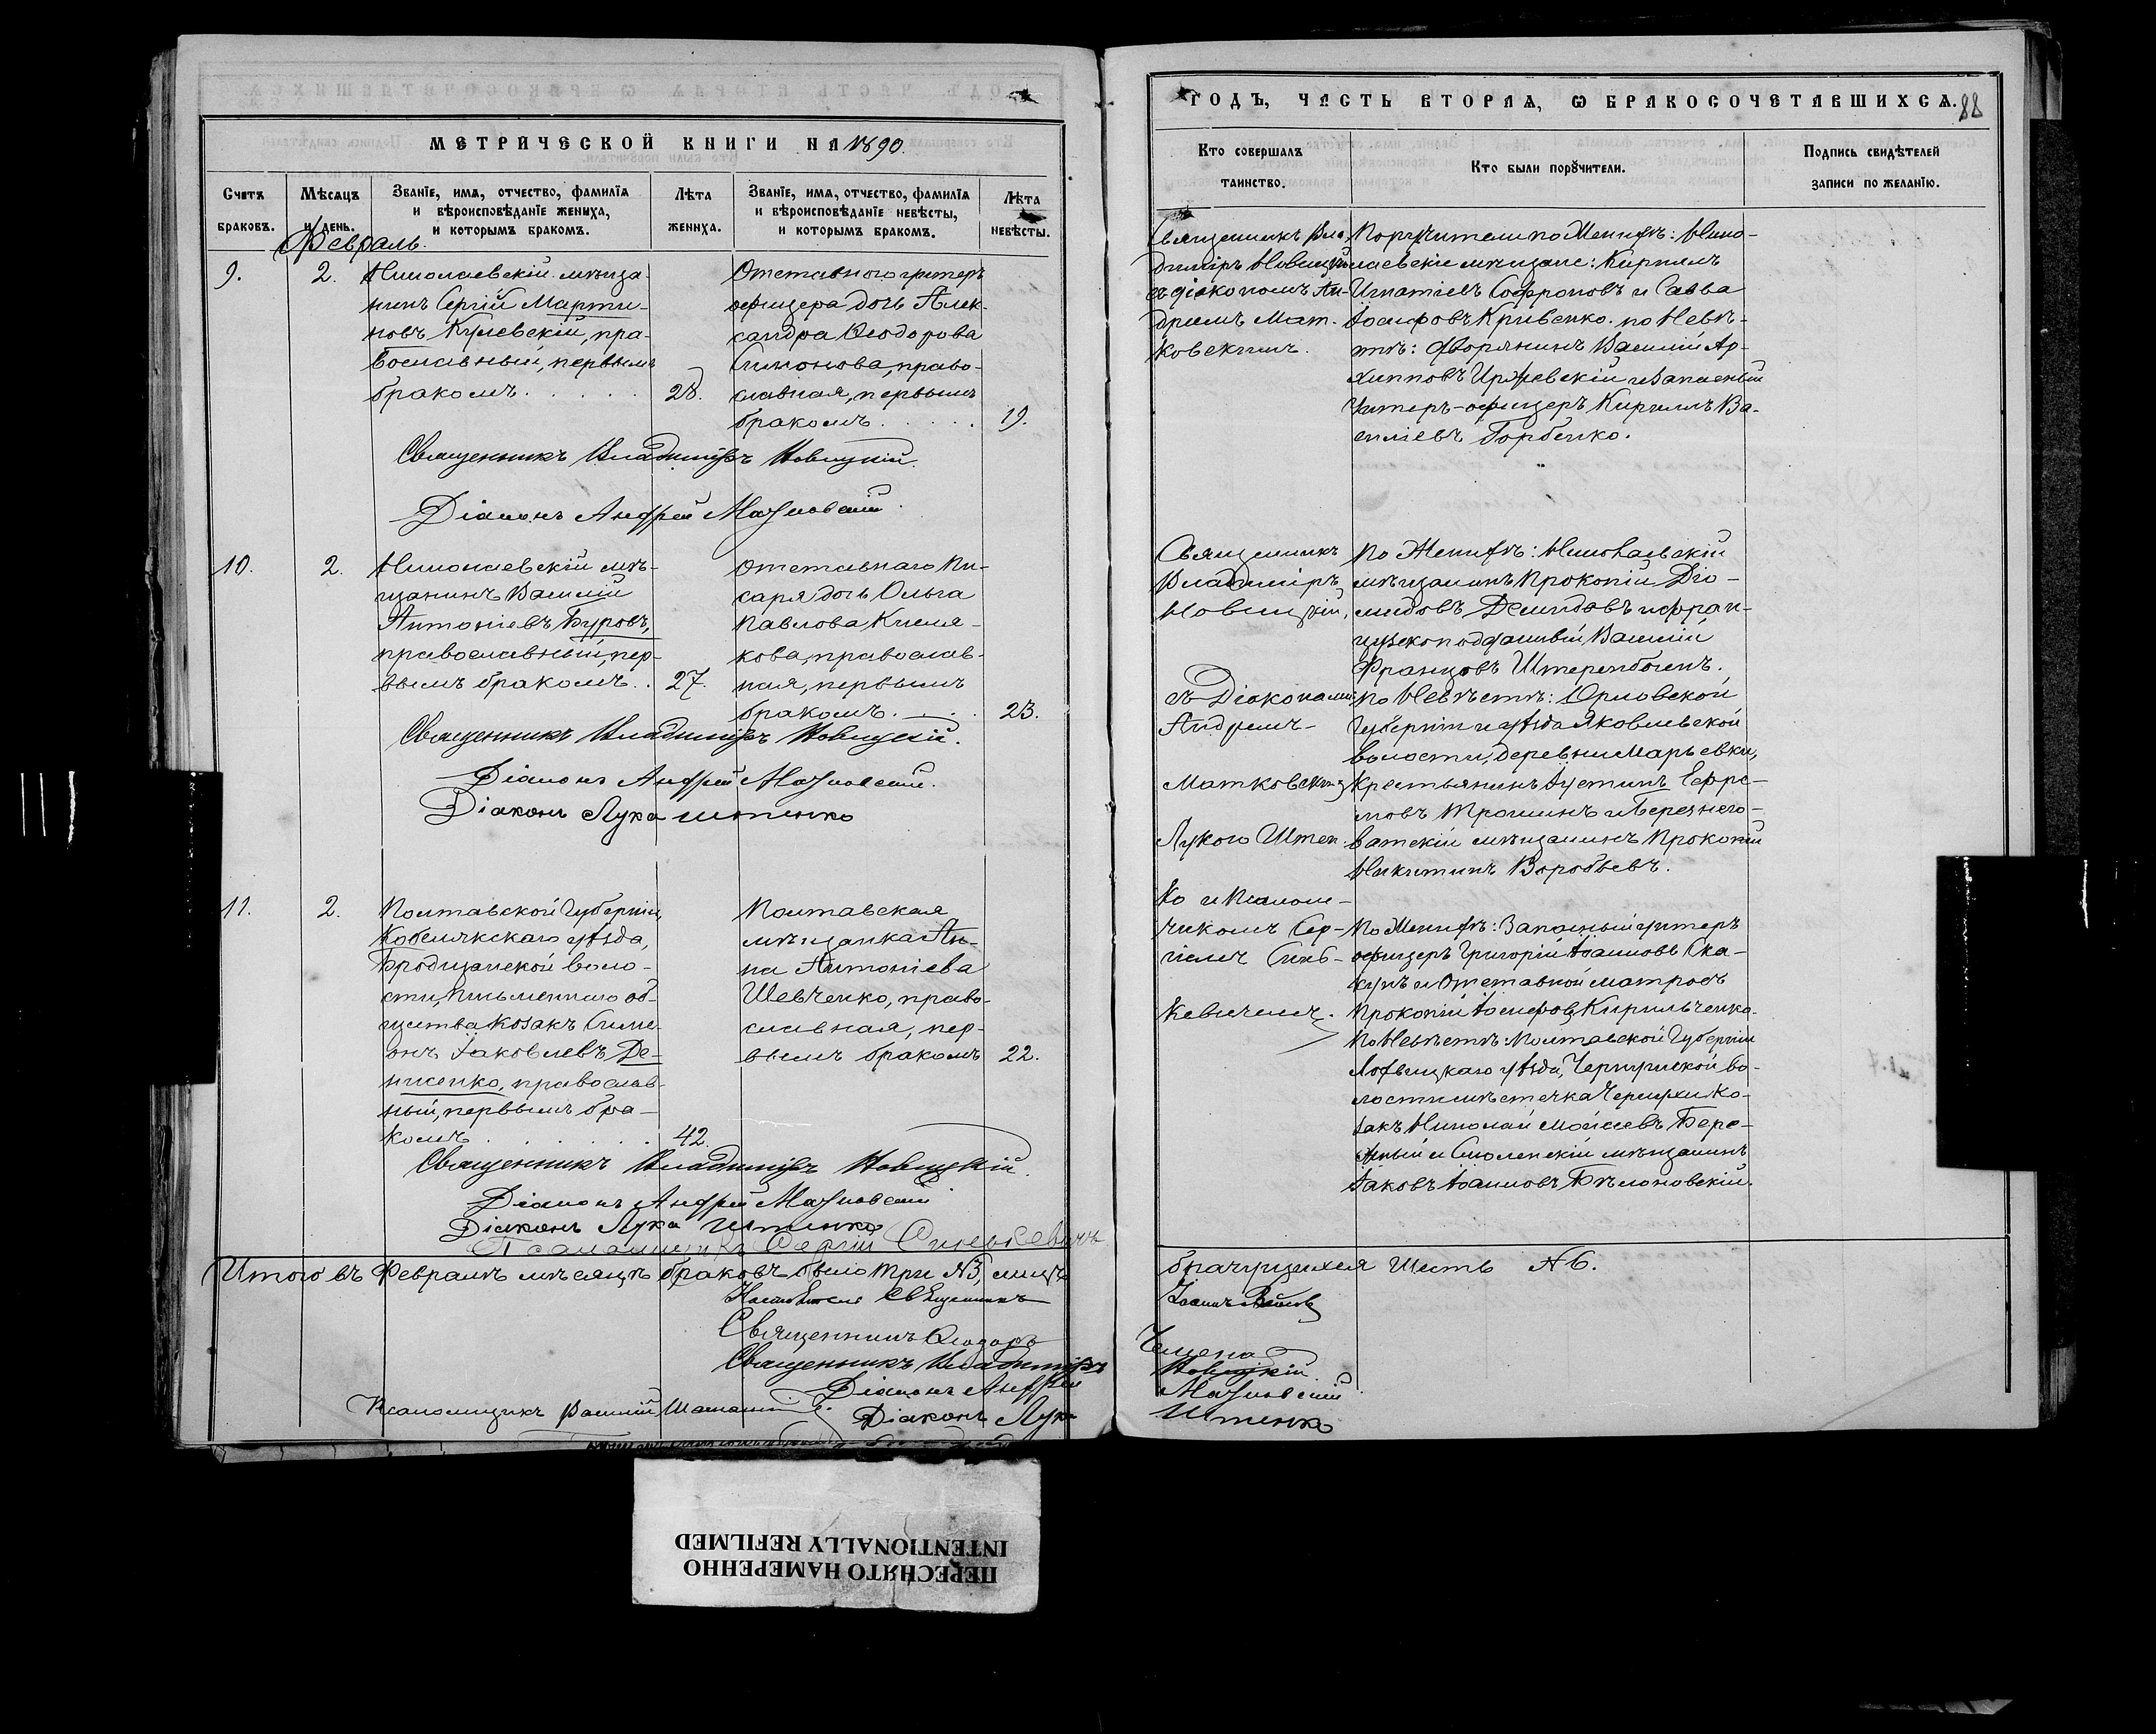 МЕТРИЧЕСКОЙ КНИГИ НА 1890.
Счетъ браковъ.
Мѣсяцъ и день.
Званіе, имя, отчество, фамилія
и вѣроисповѣданіе жениха,
и которымъ бракомъ.
Лѣта
жениха.
Званіе, имя, отчество, фамилія
и вѣроисповѣданіе невѣсты,
и которымъ бракомъ.
Лѣта
невѣсты.
Февраль.
9.
2.
Николаевскій мѣща-
нинъ Сергій Марти-
новъ Кулевскій, пра-
вославный, первымъ
бракомъ. . . . . .
28.
Отставного унтеръ
офицера дочь Алек-
сандра Ѳеодорова
Симонова, право-
славная, первымъ
бракомъ. . . . .
19.
Священникъ Владиміръ Новицкій.
Діаконъ Андрей Матковскій.
10.
2.
Николаевскій мѣ-
щанинъ Василій
Антоніевъ Буровъ,
православный, пер-
вымъ бракомъ. .
27.
Отставнаго пи-
саря дочь Ольга
Павлова Кисля-
кова, православ-
ная, первымъ
бракомъ. . . .
23.
Священникъ Владиміръ Новицкій.
Діаконъ Андрей Матковскій.
Діаконъ Лука Штенко
11.
2.
Полтавской Губерніи,
Кобелякскаго уѣзда,
Бродщанской воло-
сти, Письменнаго об-
щества козакъ Симе-
онъ Іаковлевъ Де-
нисенко, православ-
ный, первымъ бра-
комъ. . . . . . .
42.
Полтавская
мѣщанка Ан-
на Антоніева
Шевченко, право-
славная, пер-
вымъ бракомъ
22.
Священникъ Владиміръ Новицкій.
Діаконъ Андрей Матковскій
Діаконъ Лука Штенко
Псаломщикъ Сергій Синькевичъ
Итого въ Февралѣ мѣсяцѣ браковъ было три №3, лицъ
Священникъ
Священникъ Ѳеодоръ
Священникъ Владиміръ
Діаконъ Андрей
Псаломщикъ Василій
Діаконъ Лука
ГОДЪ, ЧАСТЬ ВТОРАЯ, Ѡ БРАКОСОЧЕТАВШИХСЯ.
88
Кто совершалъ
таинство.
Кто были порꙋчители.
Подпись свидѣтелей
записи по желанію.
Священникъ Вла-
диміръ Новицкій
съ діакономъ Ан-
дреемъ Мат-
ковскимъ.
Поручители по Женихѣ: Нико-
лаевскіе мѣщане: Кириллъ
Игнатіевъ Софроновъ и Савва
Іосифовъ Кривенко. по Невѣ-
стѣ: дворянинъ Василій Ар-
хипповъ Иржевскій и Запасный
Унтеръ-офицеръ Кириллъ Ва-
силіевъ Горбенко.
Священникъ
Владиміръ
Новицкій,
съ Діаконами:
Андреемъ
Матковскимъ
Лукою Штен-
ко и Псалом-
чикомъ Сер-
гіемъ Синь-
кевичемъ.
По Женихѣ: Николаевскій
мѣщанинъ Прокопій Діо-
мидовъ Демидовъ и фран-
цузскоподданный Василій
Францовъ Штеренбогенъ.
по Невѣстѣ: Орловской
Губерніи и уѣзда Яковлевской
волости, деревни Марьевки,
Крестьянинъ Іустинъ Ефре-
мовъ Трошинъ и Березнего-
ватскій мѣщанинъ Прокопій
Никитинъ Воробьевъ.
По Женихѣ: Запасный унтеръ
офицеръ Григорій Іоанновъ Ска-
кунъ и Отставной матросъ
Прокопій Іосифовъ Кирильченко.
По Невѣстѣ: Полтавской Губерніи
Лохвицкаго уѣзда, Чернухской во-
лости, мѣстечка Чернухи Ко-
закъ Николай Моѵсеевъ Бере-
жный и Смоленскій мѣщанинъ
Іаковъ Іоанновъ Бѣлоновскій.
брачущихся Шесть № 6.
Новицкій.
Матковскій
Штенко
ПЕРЕСНЯТО НАМЕРЕННО
INTENTIONALLY REFILMED